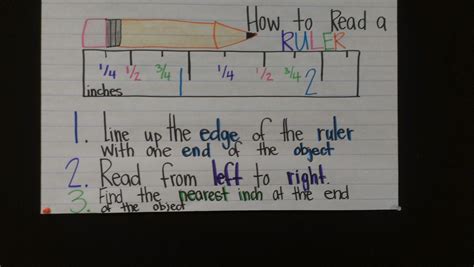 How to Read a
RULER
1/4 1/2 3/4 1 1/4 1/2 3/4 2
inches
1. Line up the edge of the ruler
with one end of the object
2. Read from left to right.
3. Find the nearest inch at the end
of the object